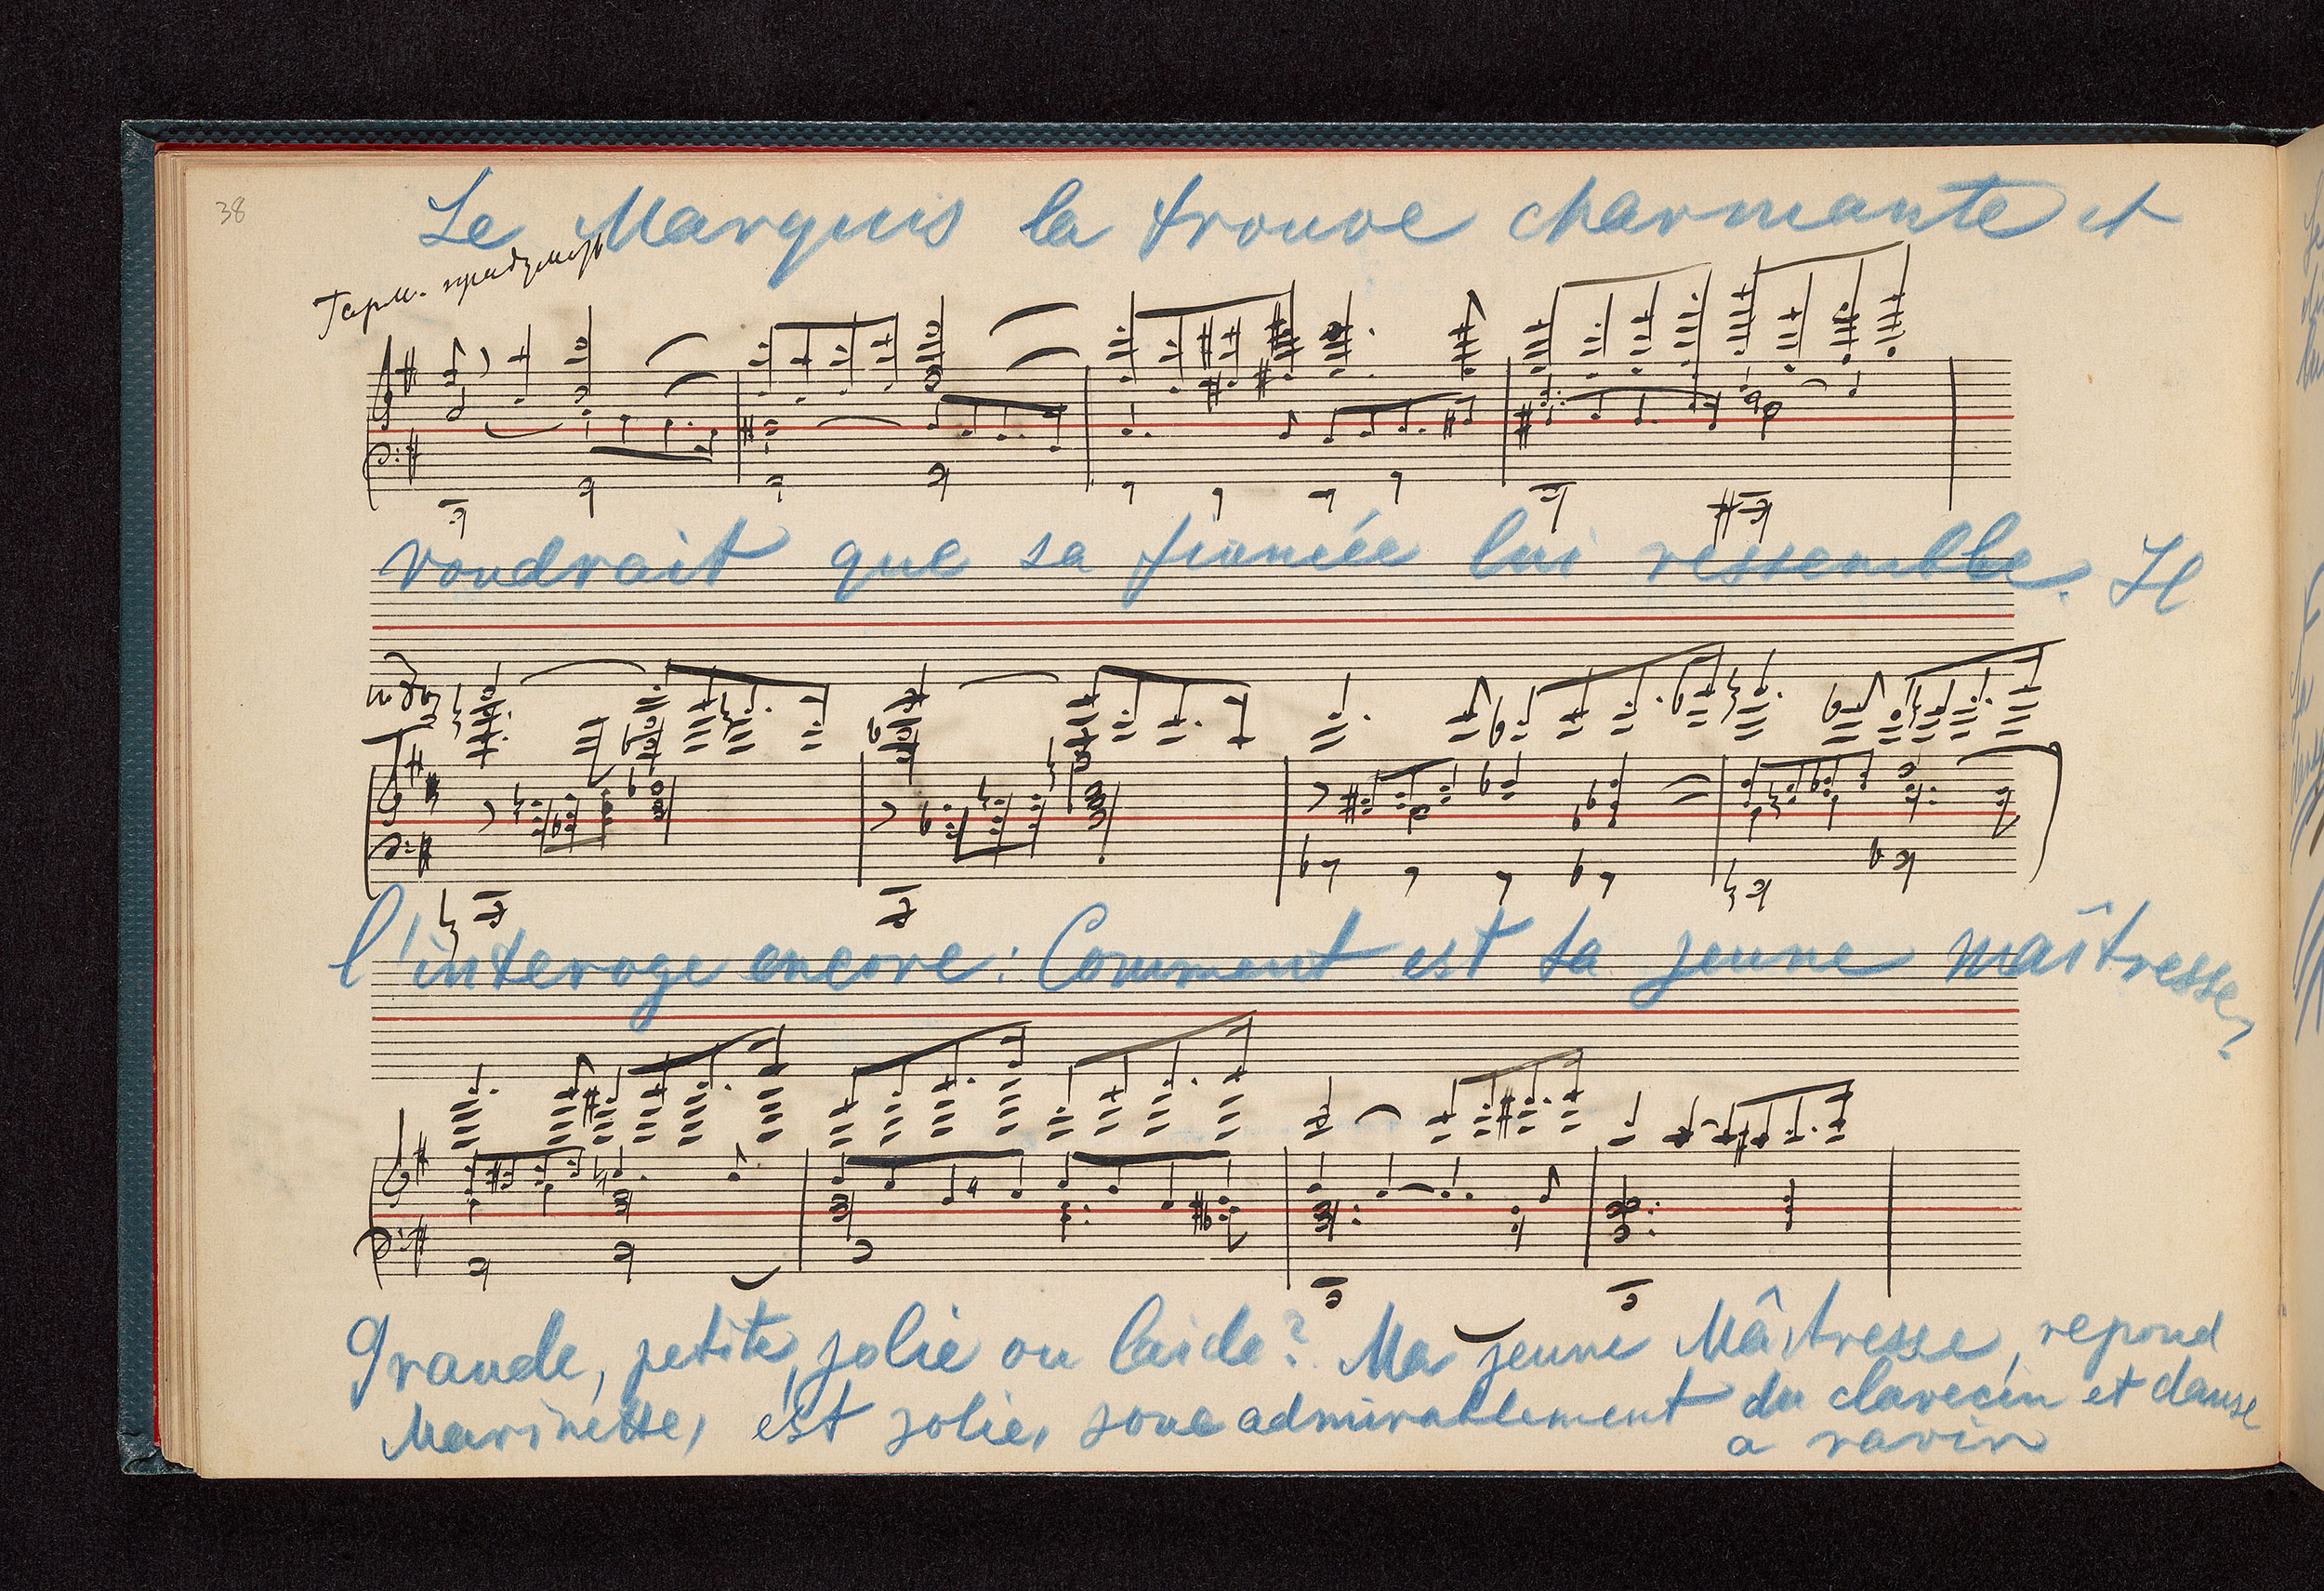 38
Le Marquis la trouve charmante et
Гарм.
voudrait que sa fiancée lui ressemble. Il
l'interoge encore: Comment est ta jeune maîtresse?
Grande, petite, jolie ou laide? Ma jeune Mâitresse, repond
Marinette, est jolie, joue admirablement du clavecin et danse
a ravir